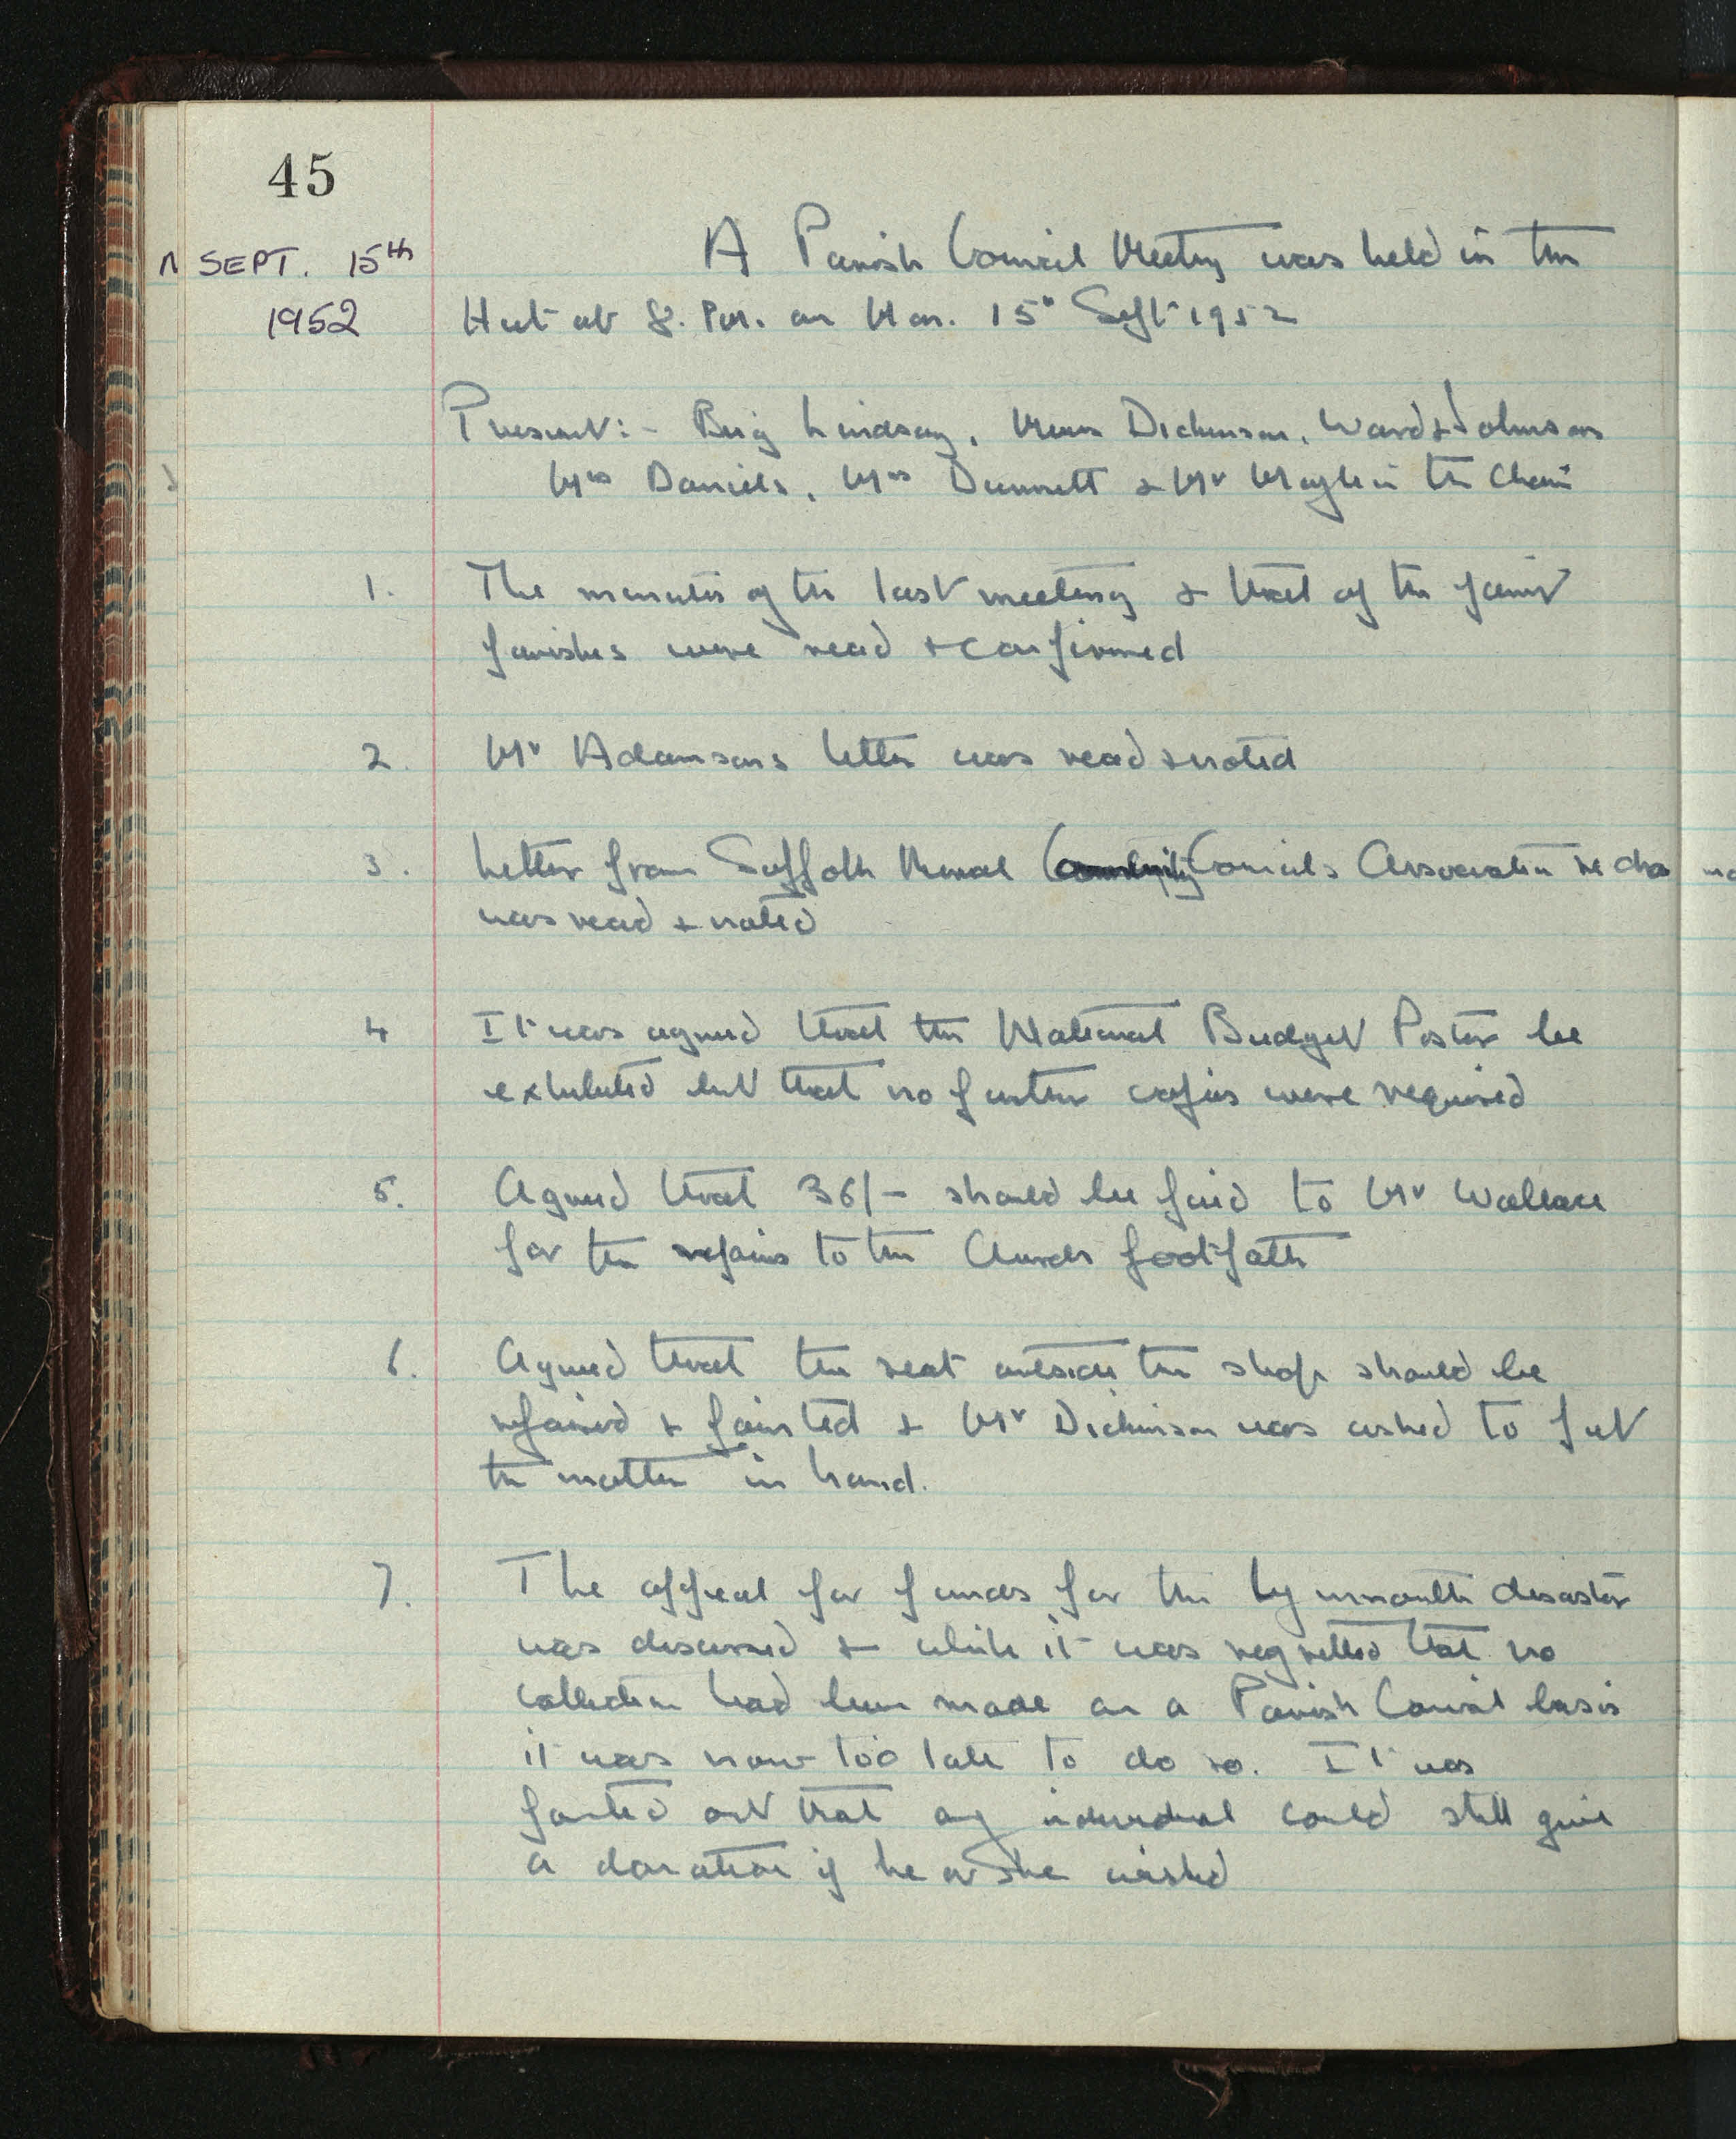 45
SEPT. 15th
1952
A Parish Council Meeting was held in the
Hut at 8. P.M. on Mon. 15° Sept 1952
Present:- Brig Lindsay, Messrs Dickinson, Ward & Johnson
Mrs Daniels, Mrs Dunnett & Mr in the Chair
1. The minutes of the last meeting & that of the joint
parishes were read & confirmed
2. Mr Adamsons letter was read & noted
3. Letter from Suffolk Rural Community Councils Association re
was read & noted
4 It was agreed that the National Budget Poster be
exhibited but that no further copies were required
5. Agreed that 36/- should be paid to Mr Wallace
for the repairs to the Church footpath
6. Agreed that the seat outside the shop should be
repaired & painted & Mr Dickinson was asked to put
the matter in hand.
7. The appeal for funds for the Lynmouth disaster
was discussed & while it was regretted that no
collection had been made on a Parish Council basis
it was now too late to do so. It was
pointed out that any individual could still give
a donation if he or she wished